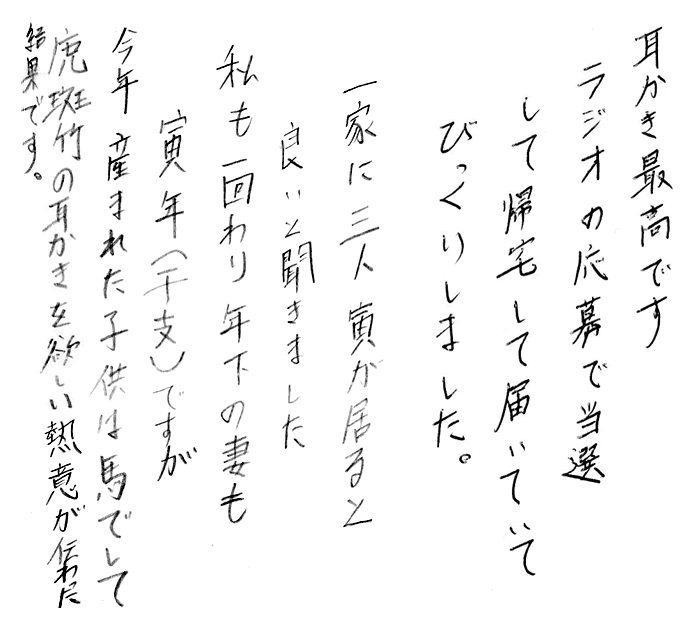 耳かき最高です
ラジオの応募で当選
して帰宅して届いていて
びっくりしました。
一家に三人寅が居ると
良いと聞きました
私も一回わり年下の妻も
寅年(干支)ですが
今年産まれた子供は馬でして
虎斑竹の耳かきを欲しい熱意が伝わた
結果です。